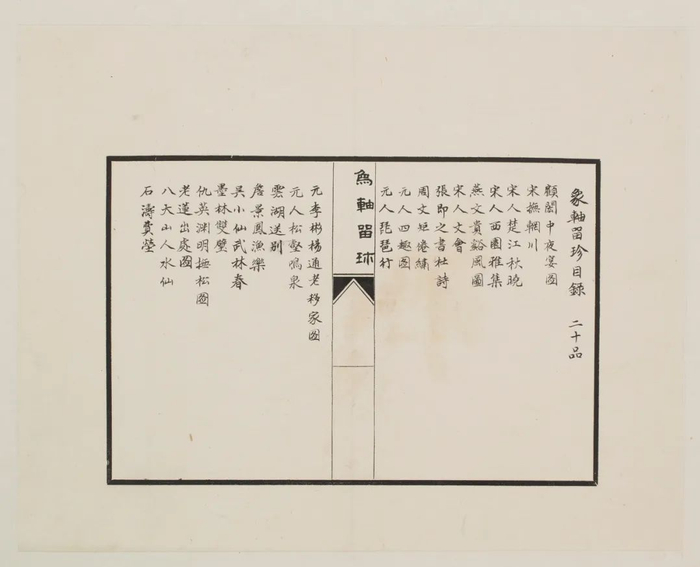 象軸畱珍目錄 二十品
顧閎中夜宴圖
宋撫輞川
宋人楚江秋曉
宋人西園雅集
燕文貴谿風圖
宋人文會
張即之書杜詩
周文矩倦繡
元人四趣圖
元人琵琶行
象軸畱珎
元李彬楊通老移家圖
元人松壑鳴泉
雲湖送別
詹景鳳漁樂
吳小仙武林春
墨林雙璧
仇英淵明撫松圖
老蓮出處圖
八大山人水仙
石濤黃瑩